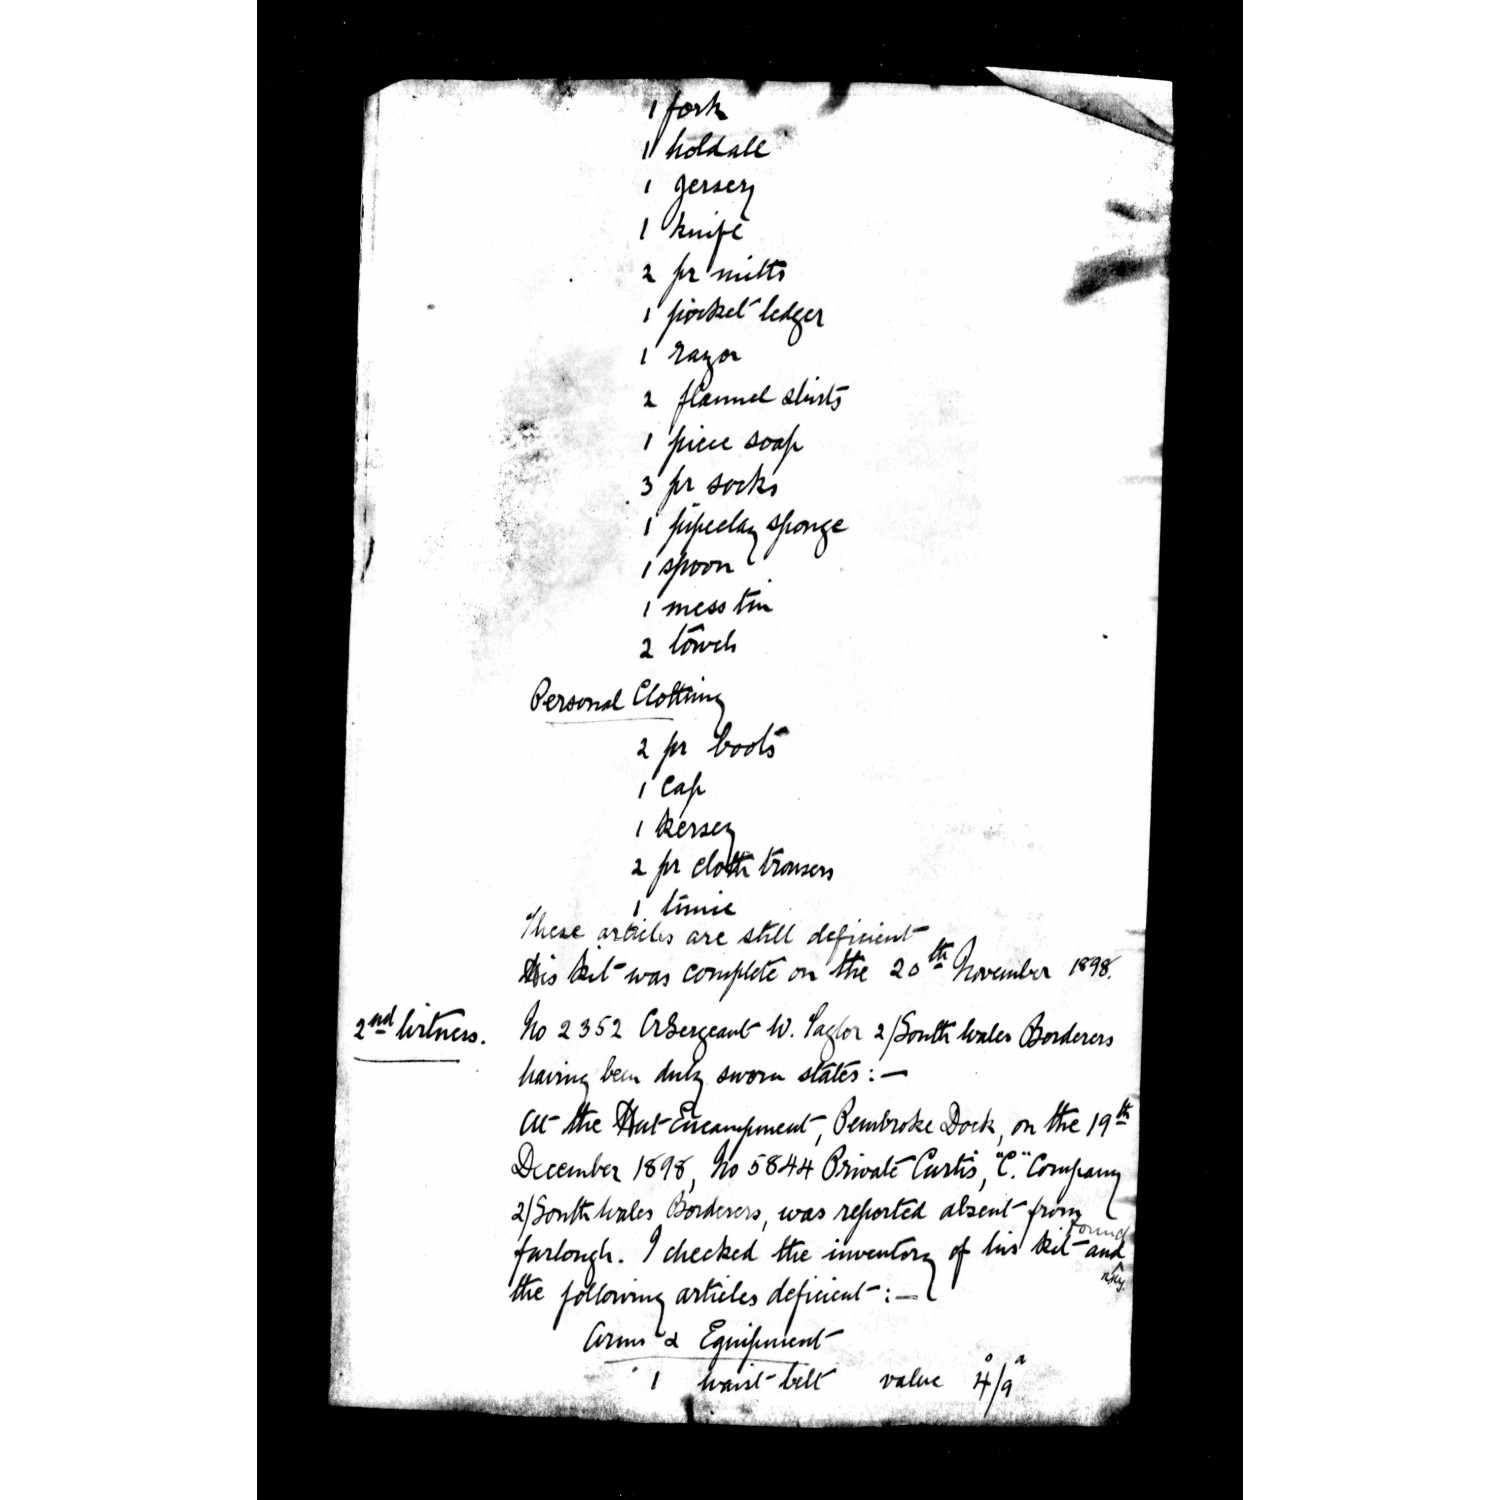 1 fork
1 holdall
1 Jersey
1 knife
2 pr mitts
1 pocket ledger
1 razor
2 flannel shirts
1 piece soap
3 pr socks
1 pipeclay sponge
1 spoon
1 mess tin
2 towels
Personal Clothing
2 pr boots
1 Cap
1 kersey
2 pr cloth trousers
1 tunic
These articles are still deficient
His kit was complete on the 20th November 1898.
2nd Witness. No 2352 Cr Sergeant W. Taylor 2/South Wales Borderers
having been duly sworn states:—
At the Hut Encampment, Pembroke Dock, on the 19th
December 1898, No 5844 Private Curtis, "C." Company
2/South Wales Borderers, was reported absent from
furlough. I checked the inventory of his kit and found
the following articles deficient:—
Arms & Equipment
1 waist belt value 4/9